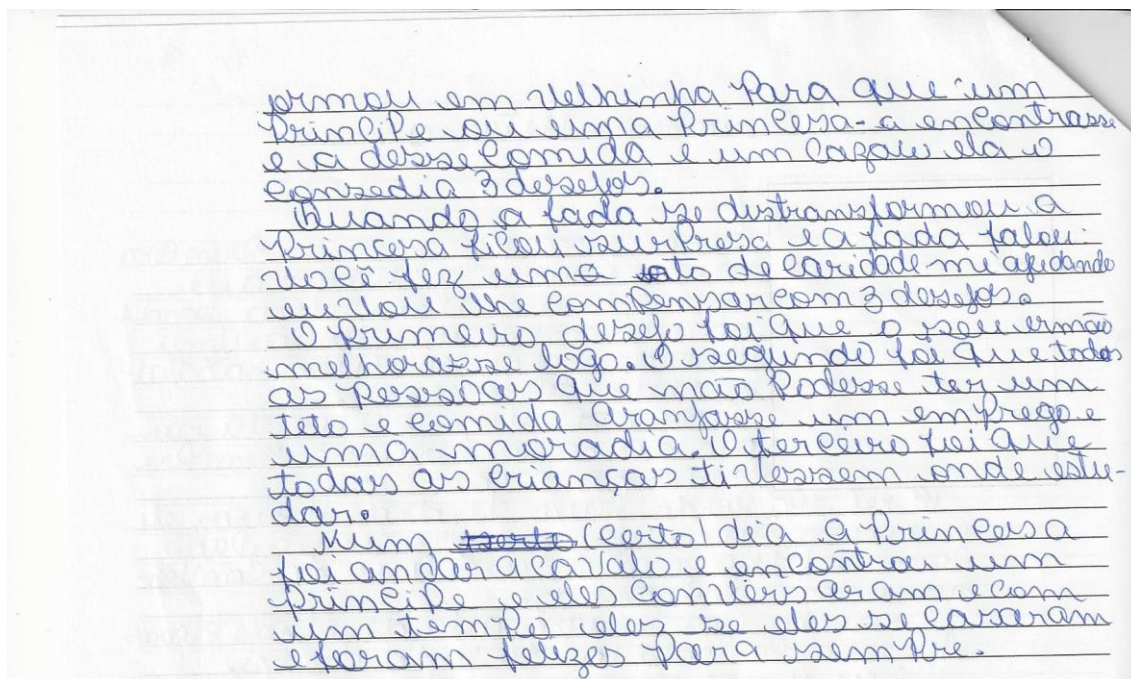 ormou em velhinha para que um
príncipe ou uma princesa - a encontrasse
e a desse comida e um cazaco ela o
consedia 3 desejos.
Quando a fada se distransformou a
princesa ficou surpresa e a fada falou:
você fez uma ato de caridade mi ajudando
eu vou lhe compensar com 3 desejos.
O primeiro desejo foi que o seu irmão
melhorasse logo. O segundo foi que todas
as pessoas que não podesse ter um
teto e comida aranjasse um emprego e
uma moradia. O terceiro foi que
todas as crianças tivessem onde estu-
dar.
Num (certo) dia a princesa
foi andar a cavalo e encontrou um
príncipe e eles conversaram e com
um tempo eles se eles se casaram
e foram felizes para sempre.